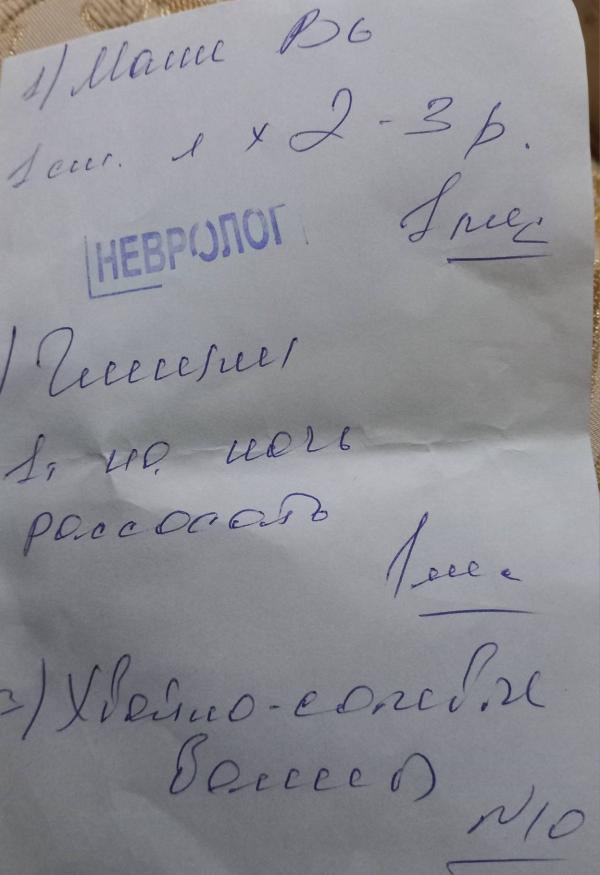 1) Магне B6
1 ст. л х 2-3 р.
1 мес
НЕВРОЛОГ
) Глицин
1т на ночь
рассосать
1 мес
3) Хвойно-солевые
ванны
N10